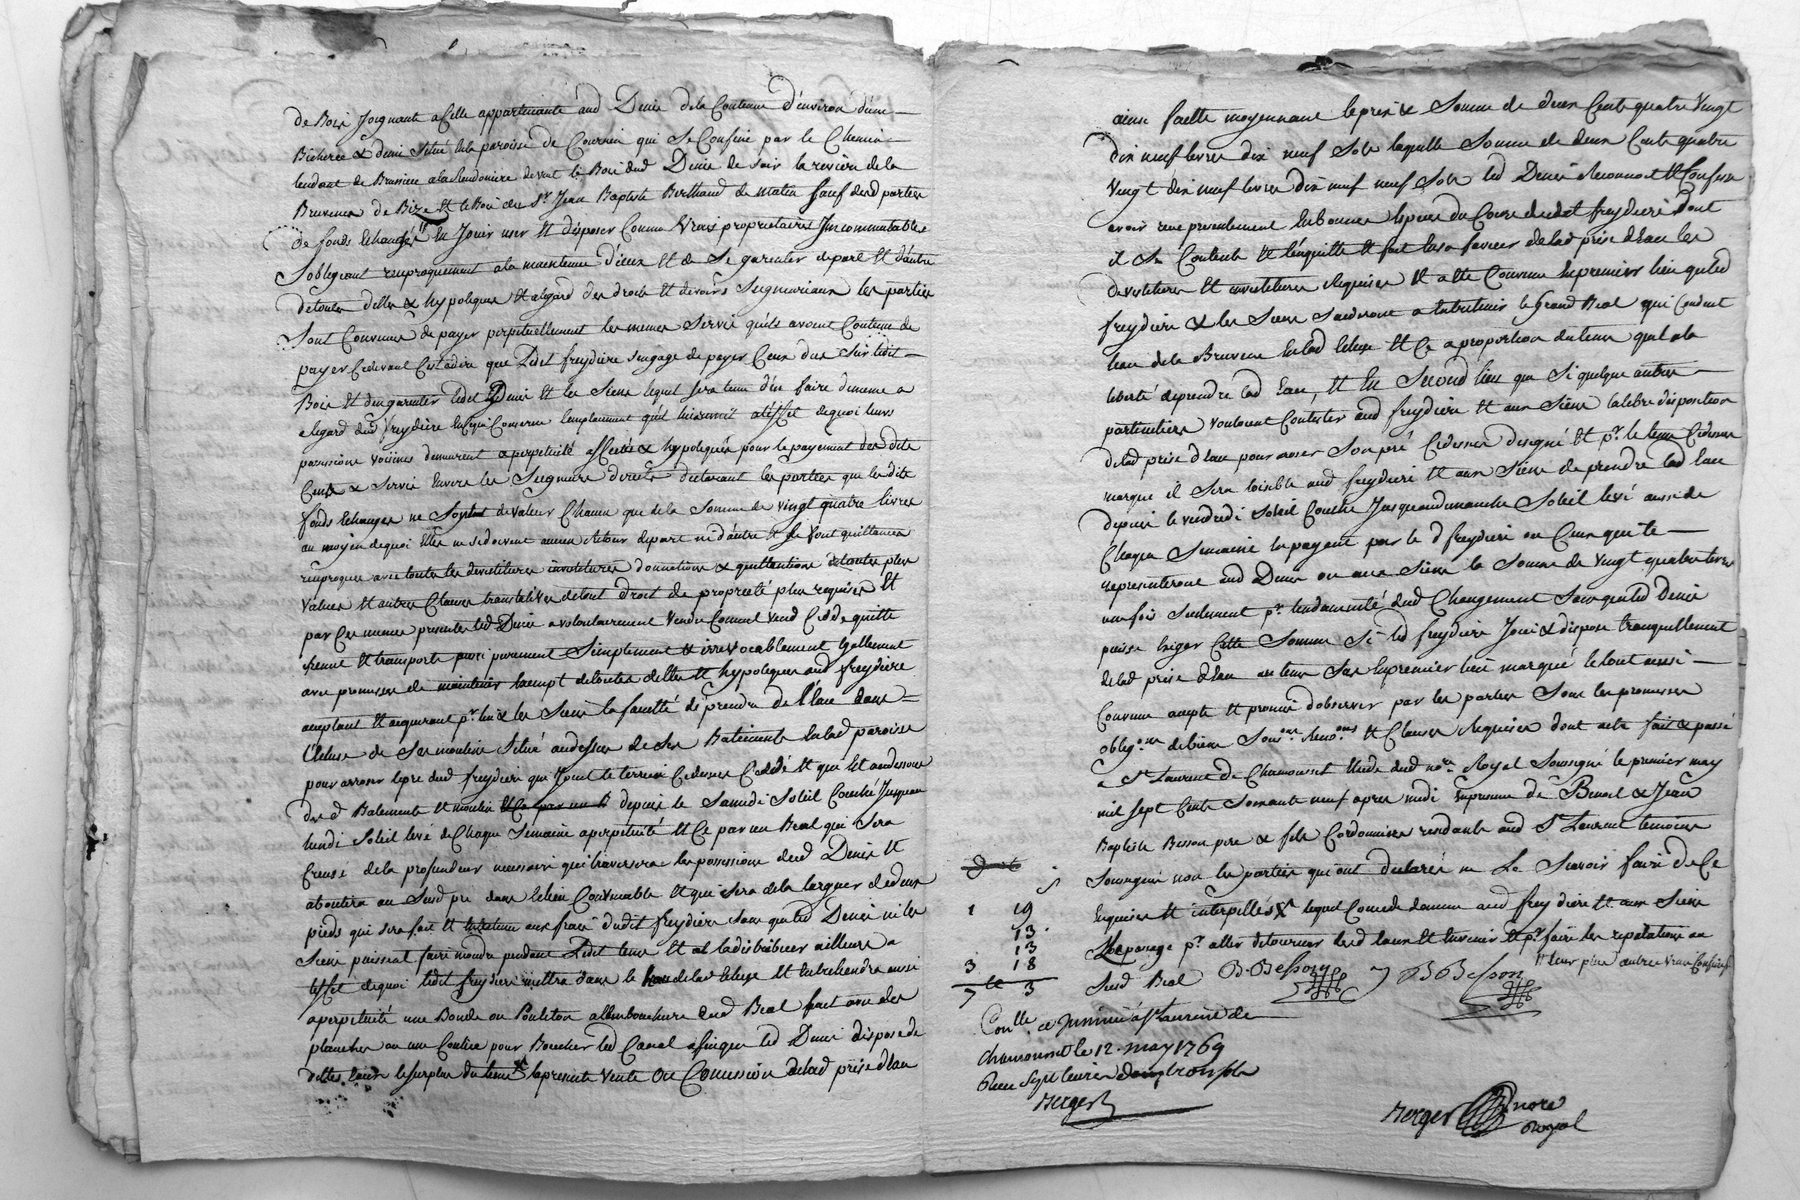 de Bois Joignant a Celle appartenante aud Denis dela Contenue d'environ d'une
Bicherée & demi Situé en la paroisse de Courzieu qui Se Confine par le Chemin
tendant de Brussieu a la Rendoniere de vent le Bois dud Denis de Soir la riviere de la
Brevenne de Bize et le Bois du Sr Jean Baptiste Berthaud de matin Sauf desd parties
de fonds Echangés En Jouir user Et disposer Comme Vrais proprietaires Incommutables
S'obligeant reciproquement a la maintenue d'iceux Et de Se garentir de part Et d'autre
de toutes dettes & hypoteques Et a l'egard des droits Et devoirs Seigneuriaux les parties
Sont Convenues de payer perpetuellement les memes Servis qu'ils avoient Coutume de
payer Cydevant C'est a dire que Ledit freydiere s'engage de payer Ceux dus Sur ledit
Bois Et d'en garentir ledit Denis Et les Siens lequel Sera tenu d'en faire de meme a
l'egard dud freydiere En Ce qui Concerne l'emplacement a l'effet de quoi leurs
possessions voisines demeurent a perpetuité affectés & hypotequés pour le payement desdits
Cens & Servis Envers les Seigneurs directs declarant les parties que lesdits
fonds Echangés ne Sont de valeur Chacun que de la Somme de vingt quatre livres
au moyen de quoi Elles ne Se doivent aucun retour de part ni d'autre Et Se font quittances
reciproques avec toutes les devestitures investitures donnations & quittances de toutes plus
values Et autres Clauses translatives de tout droit de proprieté plus requises Et
par Ces memes presentes led Denis a volontairement Vendu Comme vend Cedde quitte
remet Et transporte purement Simplement & irrevocablement
avec promesse de maintenir Exempt de toutes dettes Et hypoteques aud freydiere
acceptant Et acquerant pr lui & les Siens la faculté de prendre de l'Eau dans
l'Ecluse de Ses moulins Situé au dessus de Ses Batiments En lad paroisse
pour arroser le pré dud freydiere qui Joint le terrein Cydessus Ceddé Et qui Est au dessous
desd Batiments Et moulin depuis le Samedi Soleil Couché Jusques au
lundi Soleil levé de Chaque Semaine a perpetuité Et Ce par un Beal qui Sera
Creusé de la profondeur necessaire qui traversera les possessions dud Denis Et
aboutira au Susd pré dans le lieu Convenable Et qui Sera de la largeur de deux
pieds qui Sera fait Et Entretenu aux frais dudit freydiere Sans que led Denis ni les
Siens puissent faire moudre pendant Ledit tems Et a la distribuer ailleurs a
l'effet de quoi ledit freydiere mettra dans le de lad Ecluse Et Entretiendra aussi
a perpetuité une Bonde ou a l'embouchure dud Beal fait avec des
planches ou une pour Boucher led Canal afin que led Denis dispose de
lad Eau le Surplus du tems la presente Vente Ou Concession de lad prise d'Eau
ainsi faitte moyennant le prix & Somme de deux Cents quatre Vingt
dix neuf livres dix neuf Sols laquelle Somme de deux Cents quatre
Vingt dix neuf livres dix neuf Sols led Denis Reconnoit Et Confesse
avoir reçu presentement En bonnes Especes du Cours dudit freydiere dont
il Se Contente Et l'en quitte Et fait En Sa faveur de lad prise d'Eau les
devestitures Et investitures Requises Et a été Convenu En premier lieu que led
freydiere & les Siens Seront a Entretenir le Grand Beal qui Conduit
l'eau de la Brevenne En lad Ecluse Et Ce a proportion du tems qu'il a la
liberté de prendre lad Eau, Et En Second lieu que Si quelques autres
particuliers vouloient Contester aud freydiere Et aux Siens la libre disposition
de lad prise d'Eau pour arroser Son pré Cydessus designé Et pr le tems Cydessus
marqué il Sera loisible aud freydiere Et aux Siens de prendre lad Eau
depuis le vendredi Soleil Couché Jusques au dimanche Soleil levé aussi de
Chaque Semaine En payant par le d freydiere ou Ceux qui le
representeront aud Denis ou aux Siens la Somme de Vingt quatre livres
une fois Seulement pr Endamnité dud Changement Sans que led Denis
puisse Exiger Cette Somme Si led freydiere Jouit & dispose tranquillement
de lad prise d'Eau au tems En premier lieu marqué le tout ainsi
Convenu accepté Et promis d'observer par les parties Sous les promesses
oblig.ons de biens Soum.ons Renon.ons Et Clauses Requises dont acte fait & passé
a St Laurent de Chamousset Etude dud nore Royal Soussigné le premier may
mil Sept Cents Soixante neuf apres midi En presence de Benoit & Jean
Baptiste Besson pere & fils Cordonniers residants aud St Laurent temoins
Soussignés non les parties qui ont declarés ne Le Scavoir faire de Ce
Enquises Et interpellés lequel Denis donne aud freydiere Et aux Siens
Le passage pr aller detourner lesd Eaux Et revenir Et pr faire les reparations au
Susd Beal
B. Besson J B Besson
1 19
13
13
3 18
7 3
Conlle et Jnsinué à St Laurent de
Chamousset le 12. may 1769
Reçu Sept livres trois Sols
Berger
Berger nore
Royal